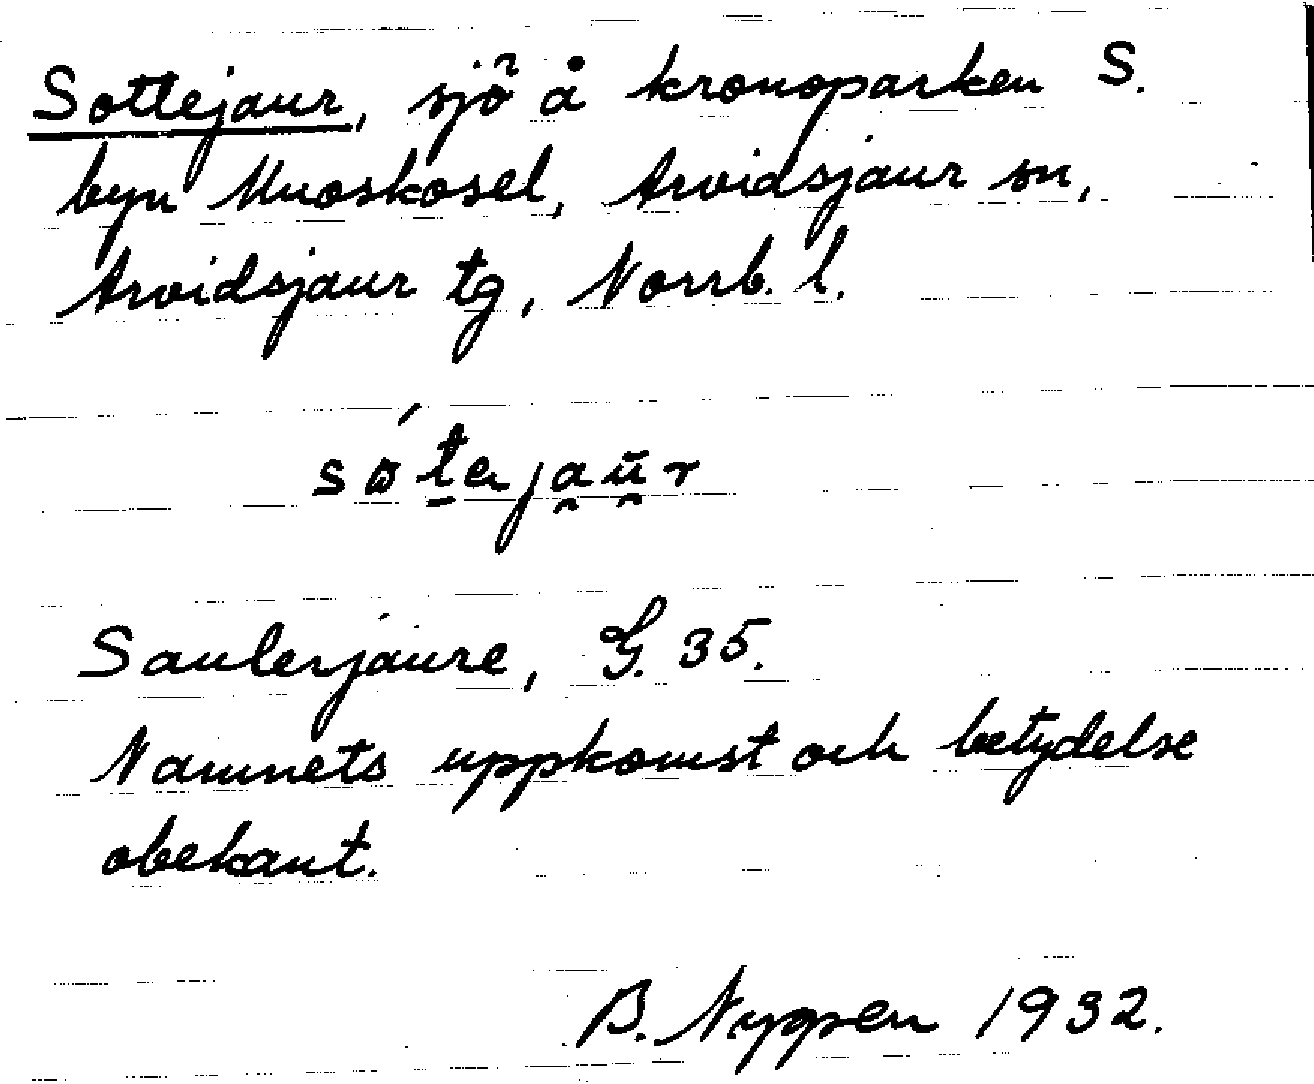 Sottejaur, sjö å kronoparken S.
byn Muoskosel, Arvidsjaur sn,
Arvidsjaur tg, Norrb. l.
Saulerjaure, G. 35.
Namnets uppkomst och betydelse
obekant.
B. Nygren 1932.